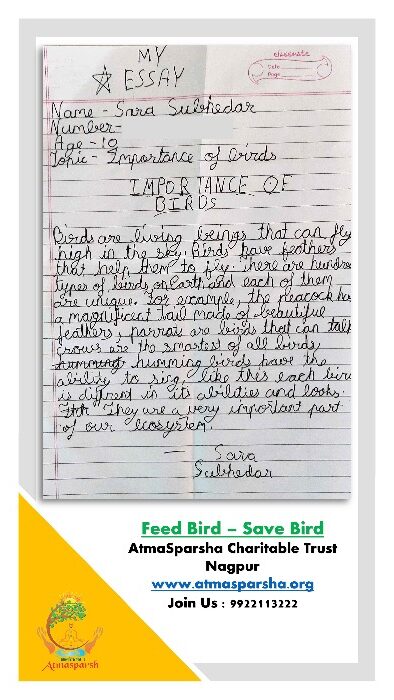 MY
ESSAY
CLASSMATE
Date
Page
Name - Sara Subhedar
Number-
Age - 10
Topic - Importance of Birds
IMPORTANCE OF
BIRDS
Birds are living beings that can fly
high in the sky. Birds have feathers
that help them to fly. There are hundred
types of birds on Earth and each of them
are unique. For example, the peacock has
a magnificent tail made of beautiful
feathers, parrots are birds that can talk
crows are the smartest of all birds
humming birds have the
ability to sing, like this each bird
is diffrent in its abilities and looks.
They are a very important part
of our ecosystem.
- Sara
Subhedar
Feed Bird – Save Bird
AtmaSparsha Charitable Trust
Nagpur
www.atmasparsha.org
Join Us : 9922113222
Atmasparsh